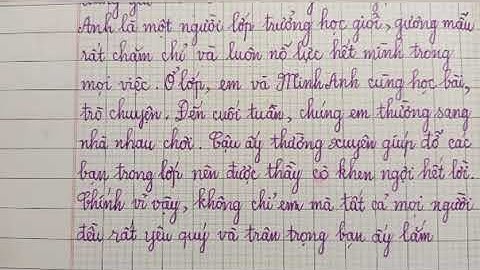 Anh là một người lớp trưởng học giỏi, gương mẫu
rất chăm chỉ và luôn nỗ lực hết mình trong
mọi việc. Ở lớp, em và Minh Anh cùng học bài,
trò chuyện. Đến cuối tuần, chúng em thường sang
nhà nhau chơi. Cậu ấy thường xuyên giúp đỡ các
bạn trong lớp nên được thầy cô khen ngợi hết lời.
Chính vì vậy, không chỉ em mà tất cả mọi người
đều rất yêu quý và trân trọng bạn ấy lắm